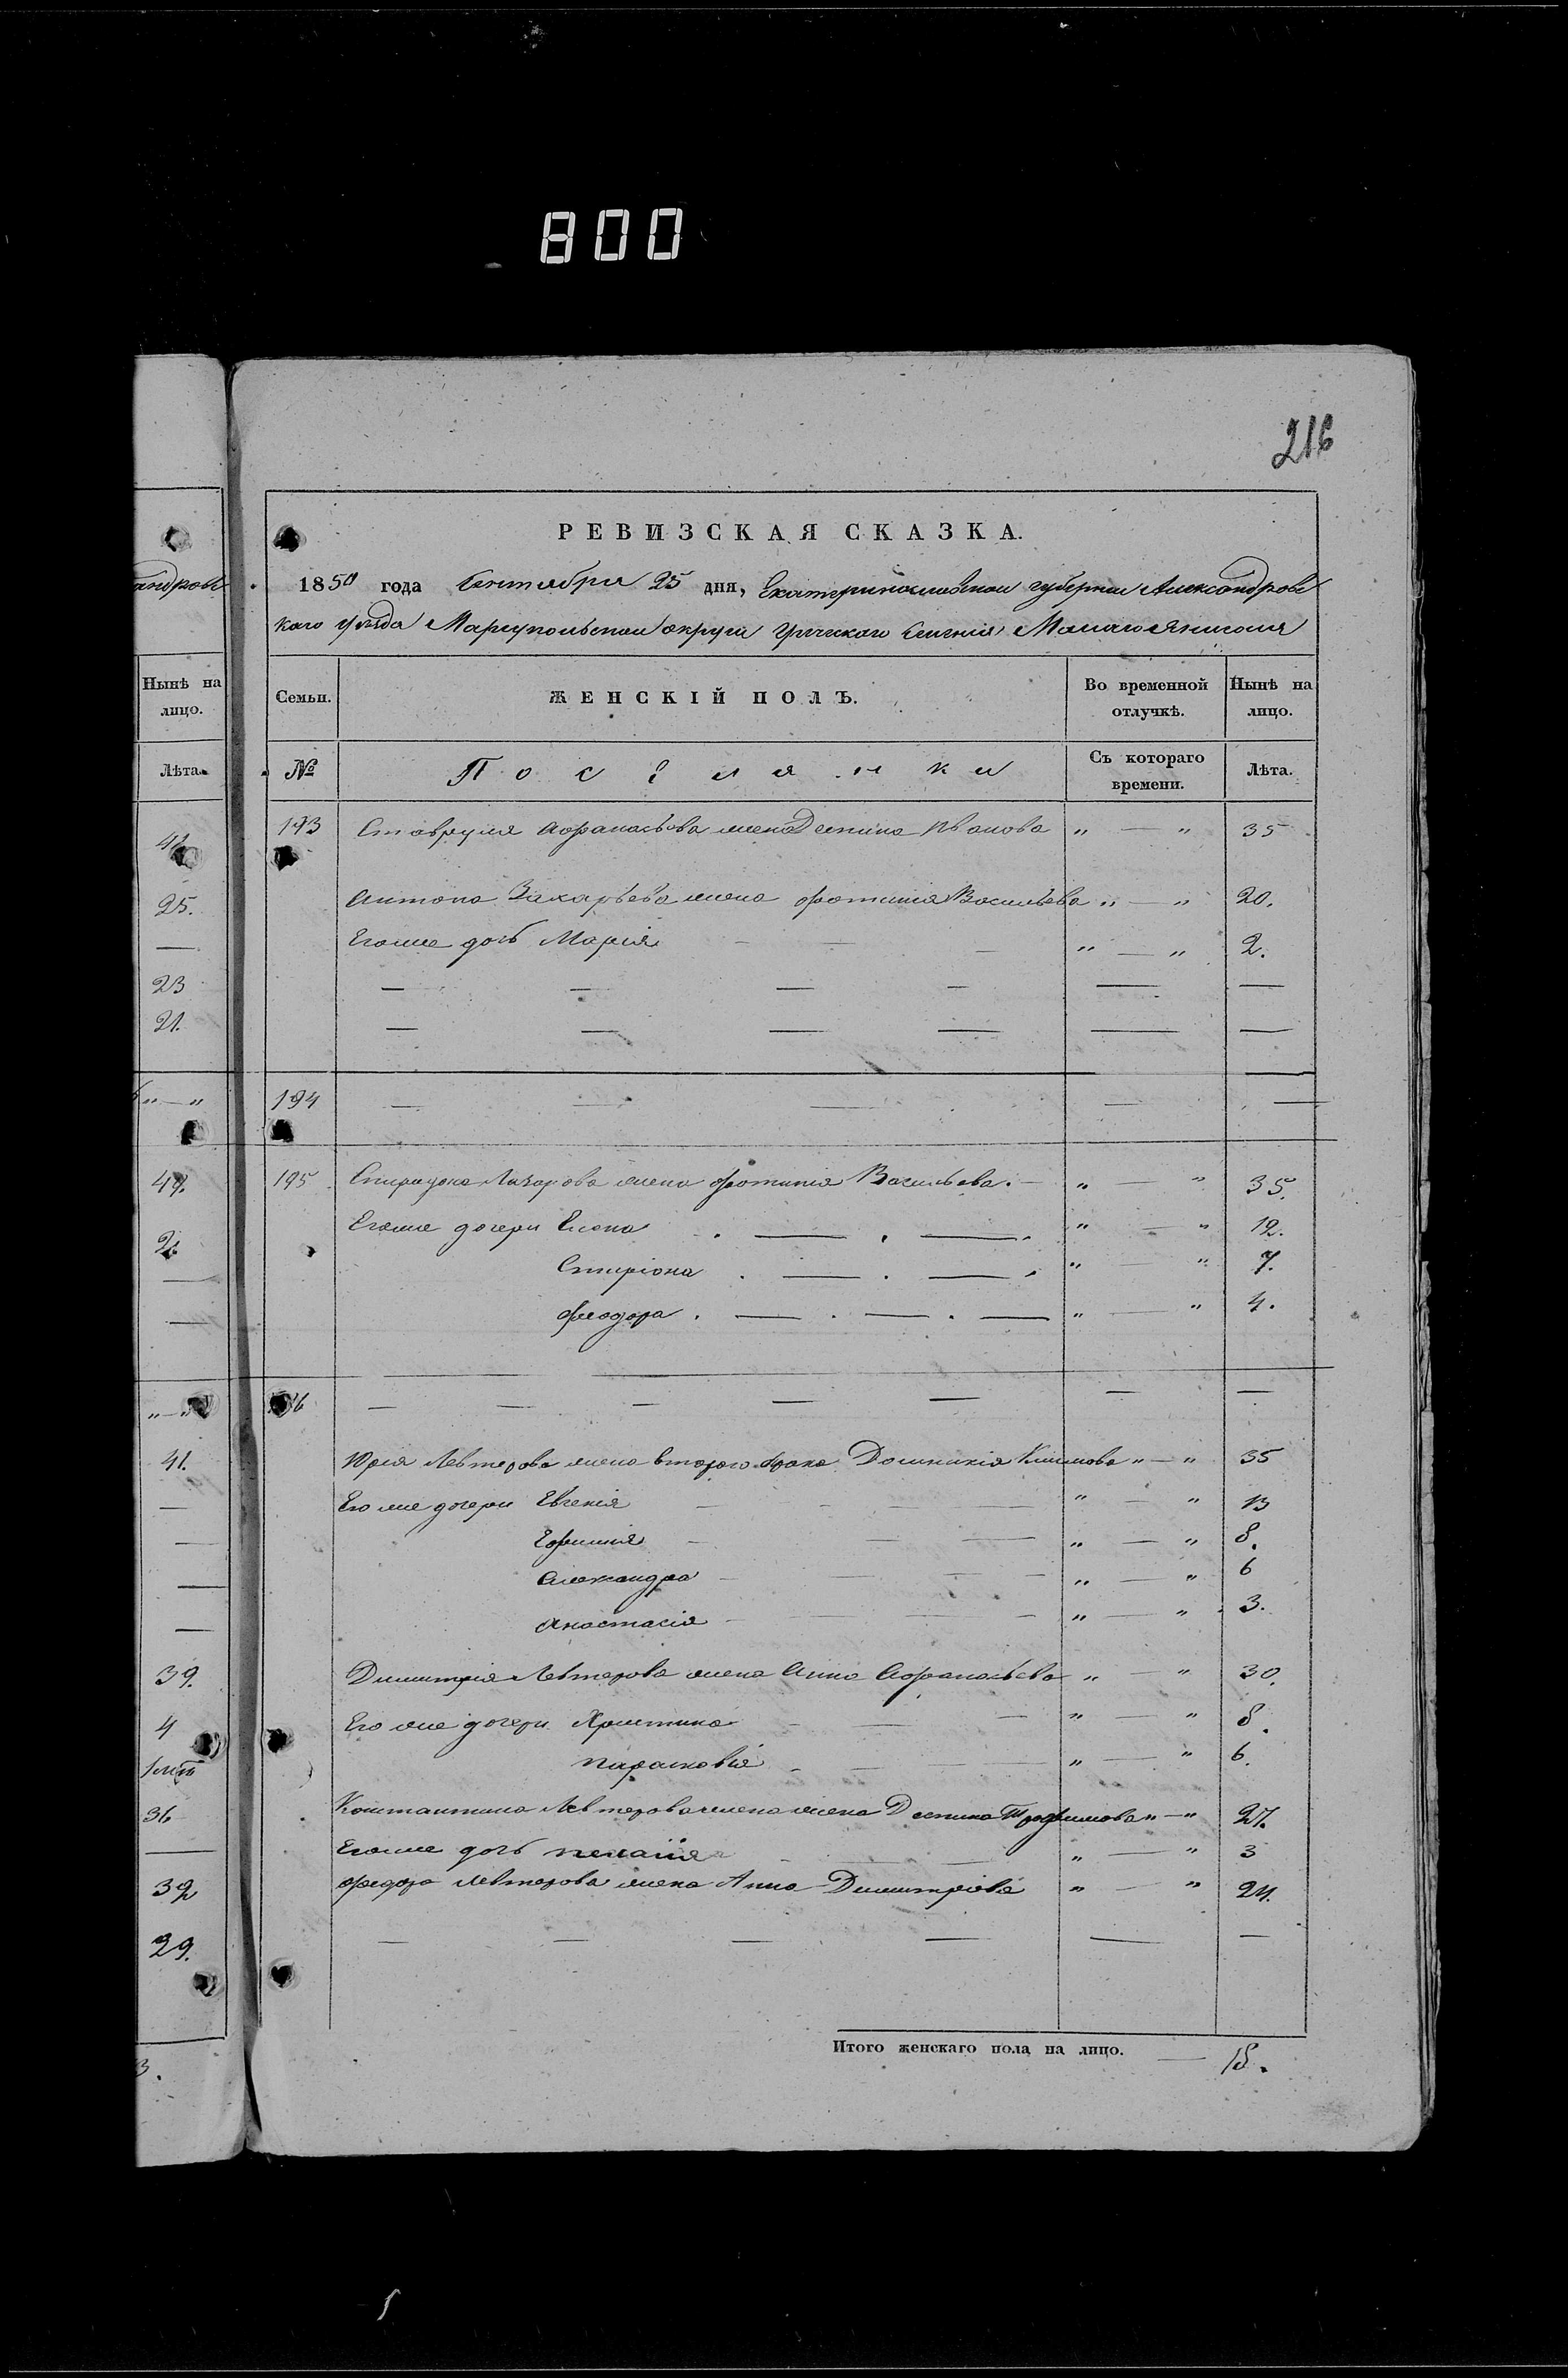 800
216
андров
Нынѣ на
лицо.
Лѣта.
41
25.
—
23
21.
„ — „
49.
2.
—
—
„ — „
41.
—
—
—
—
39.
4
36
—
32
29.
3.
РЕВИЗСКАЯ СКАЗКА.
1850 года Сентября 25 дня, Екатеринославской губернии Александровс
каго уѣзда Мариупольскаго округа Греческаго селенія Малаго Янисоля
Семьи. ЖЕНСКІЙ ПОЛЪ. Во временной отлучкѣ. Нынѣ на лицо.
№ Поселянки Съ котораго времени. Лѣта.
193 Ставруля Афанасьева жена Деспина Иванова „ — „ 35
Антона Захарьева жена Фотинія Васильева „ — „ 20.
Егоже дочь Марія — — — „ — „ 2.
— — — — — —
— — — — — —
194 — — — — —
195 Спиридона Лазарова жена Фотинія Васильева. — „ — „ 35.
Егоже дочери Елена . — . — . „ — „ 12.
Стиріона . — . — . „ — „ 7.
Феодора . — . — . — „ — „ 4.
196 — — — — — — —
Юрія Левтерова жена второго брака Домникія Климова „ — „ 35
Его же дочери Евгенія — — — „ — „ 13
Ефимія — — — „ — „ 8.
Александра — — — — „ — „ 6
Анастасія — — — — „ — „ 3.
Димитрія Левтерова жена Анна Афанасьева „ — „ 30.
Его же дочери Христина — — — „ — „ 8.
Парасковія — — — „ — „ 6.
Константина Левтерова жена жена Деспина Трофимова „ — „ 27.
Егоже дочь Пелагія — — — „ — „ 3
Федора Левтерова жена Анна Димитріова „ — „ 24.
— — — — — —
Итого женскаго пола на лицо. — 18.